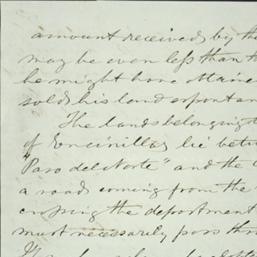 amount received by th
may be even less than t
he might have
sold his land
The lands belonging t
of Encinillas lie betw
"Paso del Norte" and the C
a road coming from the
crossing the department
must necessarily pass thr